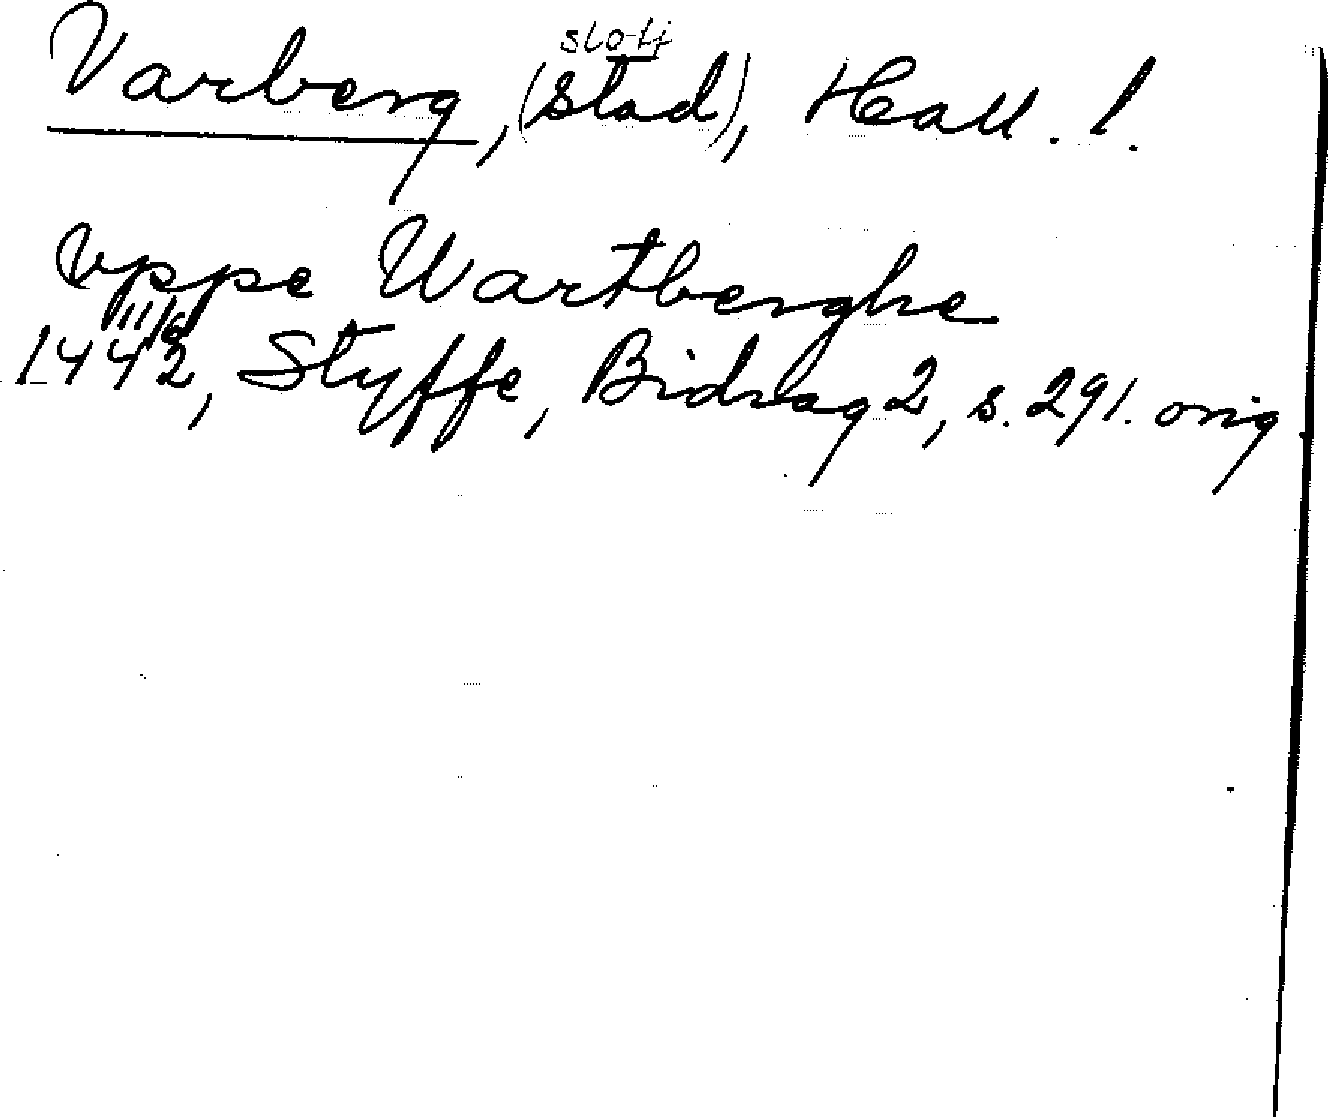 slott
Varberg, (stad), Hall. l.
vppe Wartberghe
11/6
1442, Styffe, Bidrag 2, s. 291. orig